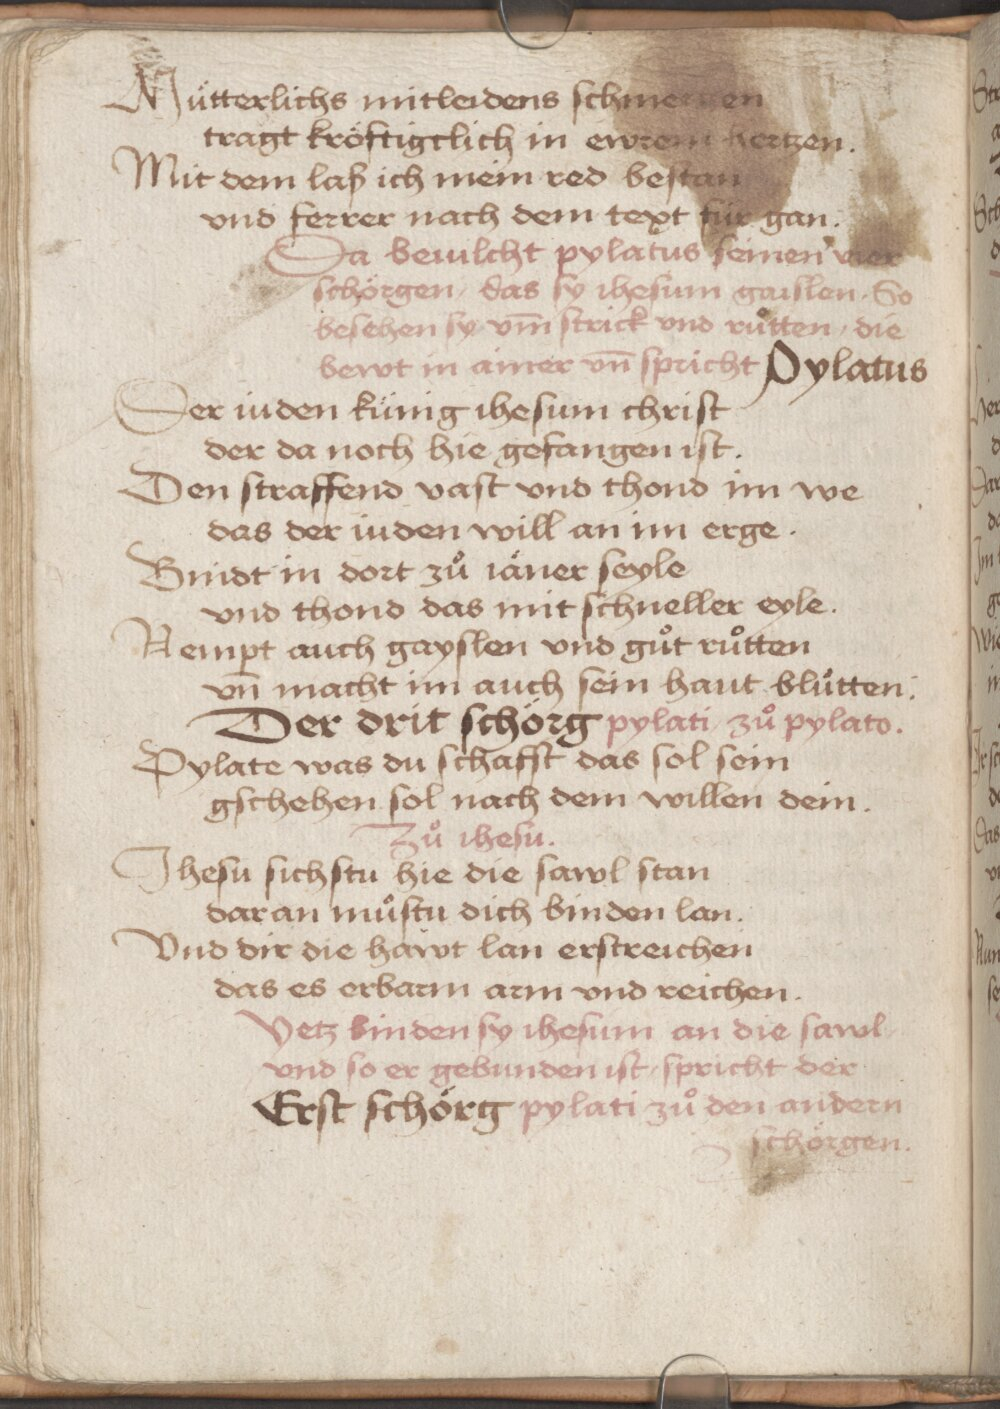 Mütterlichs mitleidens schmertzen
tragt kröftigclich in ewrem hertzen.
Mit dem laß ich mein red bestan
vnd ferrer nach dem text für gan.
Da beuilcht pylatus seinen vier
schörgen, das sy ihesum gaislen. So
besehen sy vm̄ strick vnd růtten, die
bewt in ainer vn̄ spricht Pylatus
Der iuden künig ihesum christ
der da noch hie gefangen ist.
Den straffend vast vnd thond im we
das der iuden will an im erge.
Bindt in dort zů iäner seyle
vnd thond das mit schneller eyle.
Nempt auch gayslen vnd gůt růtten
vn̄ macht im auch sein haut blůtten.
Der drit schörg pylati zů pylato.
Pylate was du schaffst das sol sein
gschehen sol nach dem willen dein.
Zů ihesu.
Ihesu sichstu hie die sawl stan
daran můstu dich binden lan.
Vnd dir die hawt lan erstreichen
das es erbarm arm vnd reichen.
Yetz binden sy ihesum an die sawl
vnd so er gebunden ist, spricht der
Erst schörg pylati zů den andern
schörgen.